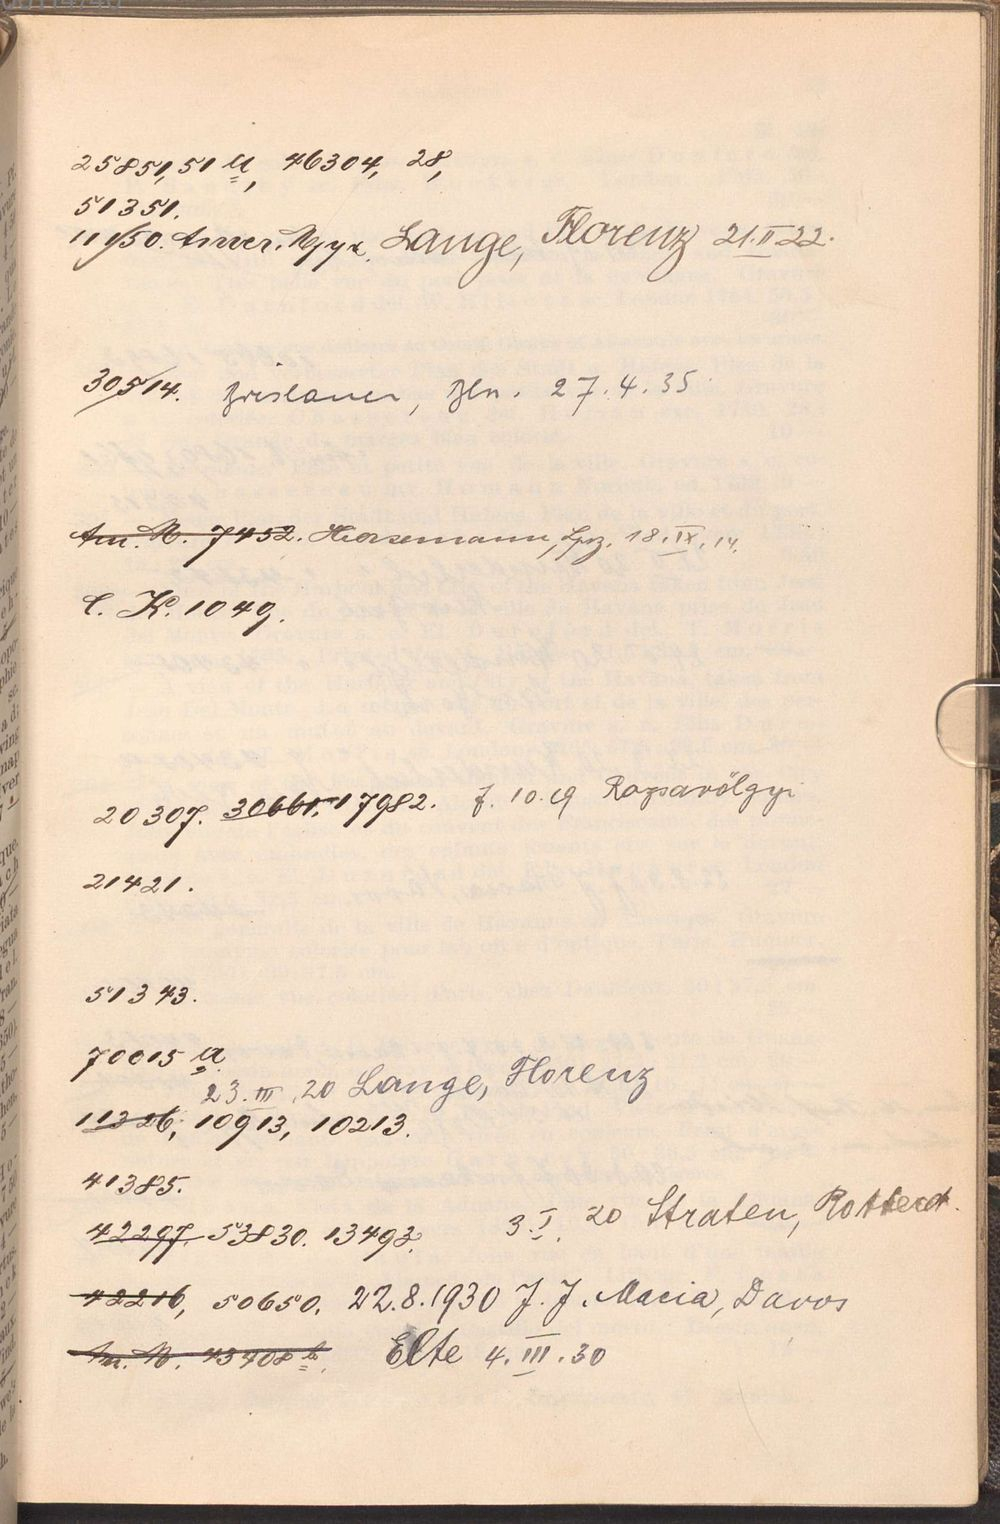 25851, 51 a, 46304, 28,
51351.
119/50. Lange, Florenz 21.II 22.
305/14. Breslauer, Bln. 27.4.35
Am. N. 7452. Horsemann, Lpz, 18.IX.14.
C. K. 1049.
20307. 30661. 17982. 7.10.19 Rozsavölgyi
21421.
51343.
70015 a.
23.III.20 Lange, Florenz
11326, 10913, 10213.
41385.
42297. 53830. 13493. 3.I.20 Straten, Rotterd.
42216, 50650. 22.8.1930 J. J. Macia, Davos
Am. N. 43408 b. Elte 4.III.30